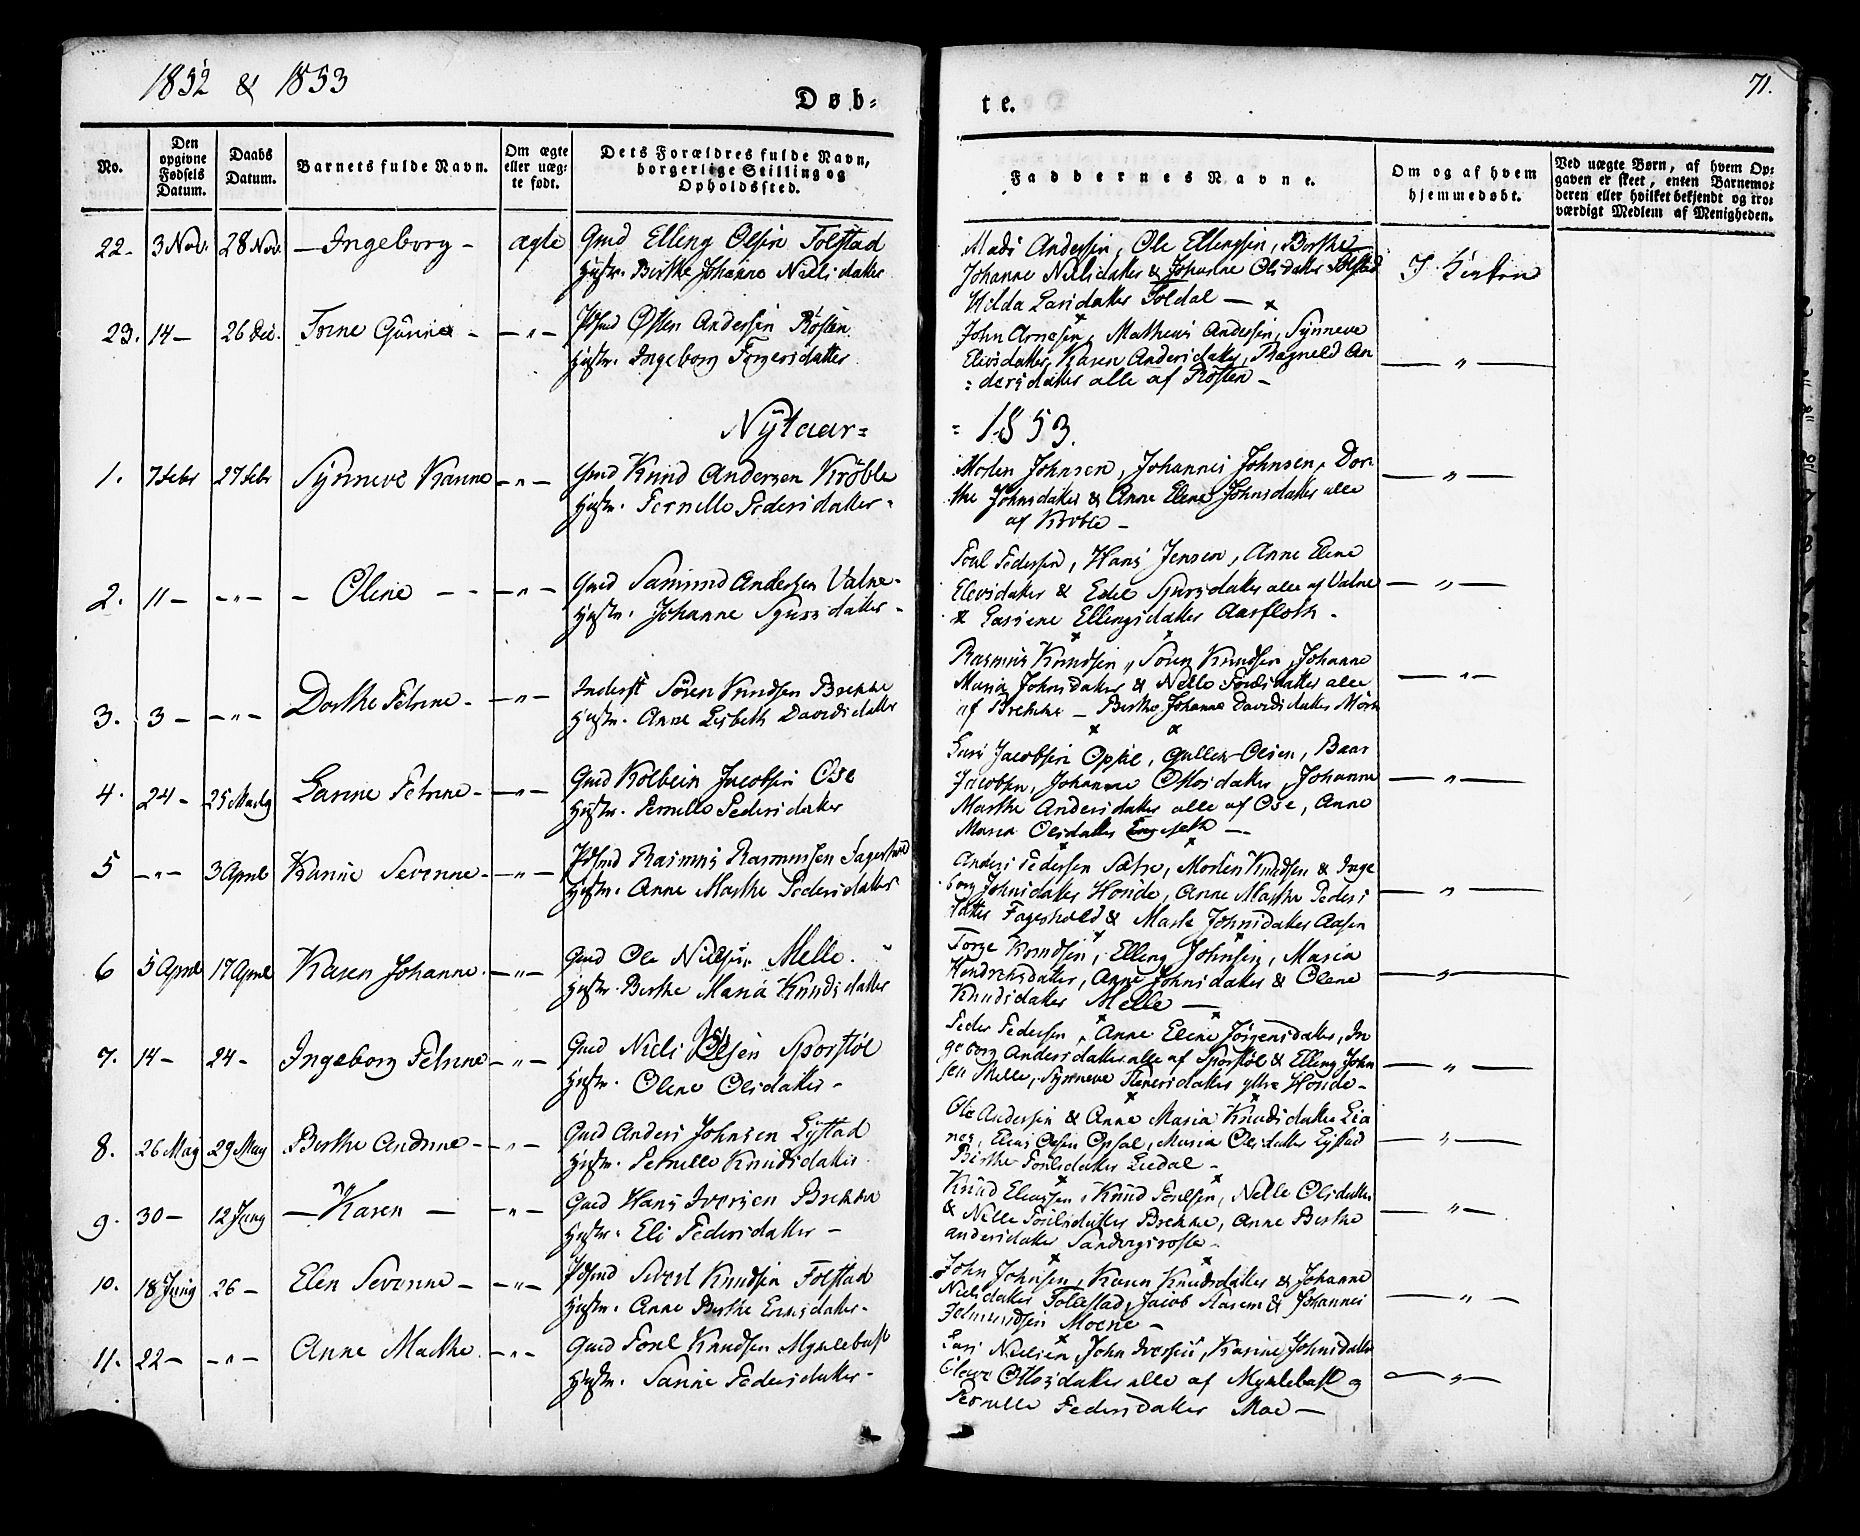 1852 & 1853
Døb-
te.
71.
No.
Den opgivne Fødsels Datum.
Daabs Datum.
Barnets fulde Navn.
Om ægte eller uægte født.
Dets Forældres fulde Navn, borgerlige Stilling og Opholdssted.
Faddernes Navne.
Om og af hvem hjemmedøbt.
Ved uægte Børn, af hvem Opgaven er skeet, enten Barnemoderen eller hvilket bekjendt og troværdigt Medlem af Menigheden.
22- 3 Nov. 28 Nov. — Ingeborg - ægte Gmd Elling Olsen Folstad
Hustr. Birthe Johanne Nielsdatter
Mads Andersen, Ole Ellingsen, Berthe
Johanne Nielsdatter & Johanne Olsdatter Folstad
Hilda Larsdatter Foldal —
I Kirken
23. 14 - 26 Dec. Torne Gurine - — „ — Østen Andersen Røsten
Hustr. Ingeborg Torgersdatter
John Arnesen, Matheus Andersen, Synneve
Elevsdatter, Karen Andersdatter, Ragneld An
= dersdatter alle af Røsten -
— „ —
Nÿtaar=
= 1853.
1. 7 Febr 27 Febr Synneve Hanne — „ — Gmd Knud Andersen Krøble
Hustr. Pernelle Pedersdatter -
Morten Johnsen, Johannes Johnsen, Dor-
the Johnsdatter & Anne Elene Johnsdatter alle
af Krøble -
— „ —
2. 11 - — „ — - Oline - - — „ — Gmd Samund Andersen Vatne -
Hustr. Johanne Sjursdatter -
Poul Pedersen, Hans Jensen, Anne Elene
Elevsdatter & Edel Sjursdatter alle af Vatne
& Lasiene Ellingsdatter Aarfloth -
— „ —
3. 3 - — „ — Dorthe Petrine - — „ — Inderst Søren Knudsen Brekke
Hustr. Anne Lisbeth Davidsdatter
Rasmus Knudsen, Søren Knudsen, Johanne
Maria Johnsdatter & Nelle Poulsdatter alle
af Brekke — Berthe Johanne Davidsdatter Mork
— „ —
4. 24 - 25 Marts Larine Petrine - — „ — Gmd Kolbein Jacobsen Ose
Hustr. Pernelle Pedersdatter
Lars Jacobsen Opsal, Gullik Olsen, Baar
Jacobsen, Johanne Olsdatter, Johanne
Marthe Andersdatter alle af Ose, Anne
Maria Olsdatter Engeseth —
— „ —
5 — „ — 3 April Karine Severine - — „ — Rasmus Rasmussen Fagerhold
Hustr. Anne Marthe Pedersdatter
Anders Pedersen Sætre, Morten Knudsen & Inge
borg Johnsdatter Hovde, Anne Marthe Peders
datter Fagerhold & Marte Johnsdatter Aasen
— „ —
6 5 April 17 April Karen Johanne - — „ — Gmd Ole Nielsen Melle.
Hustr. Berthe Maria Knudsdatter
Torge Knudsen, Elling Johnsen, Maria
Hendriksdatter, Anne Johnsdatter & Olene
Knudsdatter Melle —
— „ —
7. 14 - 24 - Ingeborg Petrine — „ — Gmd Niels Olsen Sporstøl
Hustr. Olene Olsdatter -
Peder Pedersen, Anne Elene Jørgensdatter, In
geborg Andersdatter alle af Sporstøl & Elling John
sen Melle, Synneve Steneersdatter ytre Hovde -
— „ —
8. 26 May 29 May Berthe Andrine - - „ - Gmd Anders Johnsen Lystad
Hustr. Pernelle Knudsdatter
Ole Andersen & Anne Maria Knudsdatter Lia
nes, Elias Olsen Opsal, Maria Olsdatter Lystad
Berthe Poulsdatter Liedal -
— „ —
9. 30 - 12 Juny — Karen — - „ - Gmd Hans Iversen Brekke
Hustr. Eli Pedersdatter -
Knud Eliassen, Knud Poulsen, Nelle Olsdatter
& Nelle Poulsdatter Brekke, Anne Berthe
Andersdatter
— „ —
10. 18 Juny 26 - Elen Severine - — „ — Sivert Knudsen Folstad
Hustr. Anne Berthe Eriksdatter -
John Johnsen, Karen Knudsdatter & Johanne
Nielsdatter Folestad, Jacob Aasen & Johannes
Moene -
— „ —
11. 22 - — „ — Anne Marthe - „ - Gmd Poul Knudsen Myklebust
Hustr. Sanine Pedersdatter -
Lars Nielsen, John Iversen, Karine Johnsdatter
Olave Ottosdatter alle af Myklebust og
Pernille Pedersdatter Moe —
— „ —